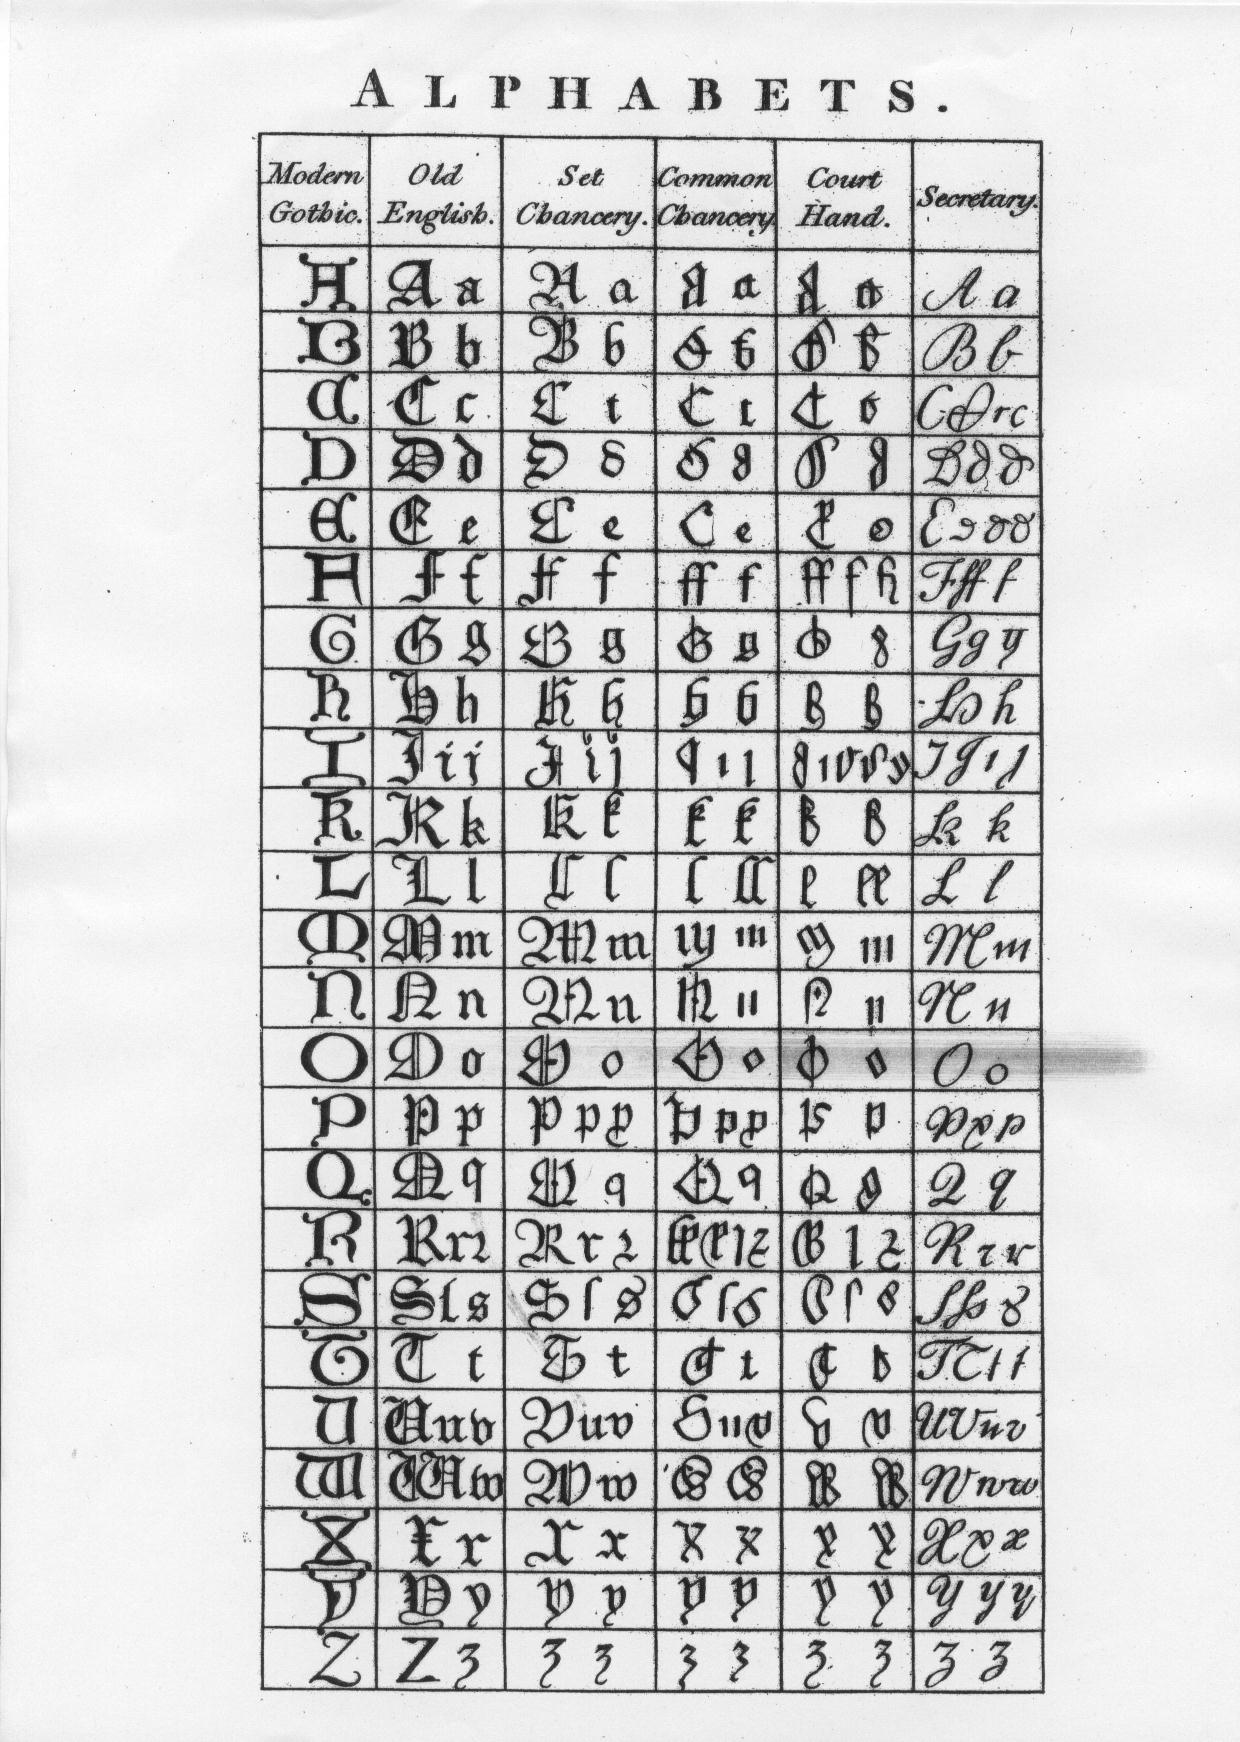 ALPHABETS.
Modern Gothic. Old English. Set Chancery. Common Chancery Court Hand. Secretary.
A A a A a A a A a A a
B B b B b B b B b B b
C C c C c C c C c C C r c
D D d D d D d D d D d d
E E e E e C e E e E e e e
F F f F f ff f ff f f F ff f
G G g G g G g G g G g y
H H h H h H h H h H h
I I i j I i j I i j I i I J i j
K K k K k K k K k K k
L L l L l l ll l ll L l
M M m M m M m M m M m
N N n N n N n N n N n
O O o O o O o O o O o
P P p P p p P p p P p P p p
Q Q q Q q Q q Q q Q q
R R r ꝛ R r ꝛ R R r ꝛ R r ꝛ R r r
S S ſ s S ſ s S ſ s S ſ s S s s
T T t T t T t T t T T t t
U U u v V u v U u v U v U V u v
W W w W w W w W w W w w
X X x X x X x X x X x x
Y Y y Y y Y y Y y Y y y
Z Z ʒ ʒ ʒ ʒ ʒ ʒ ʒ ʒ ʒ